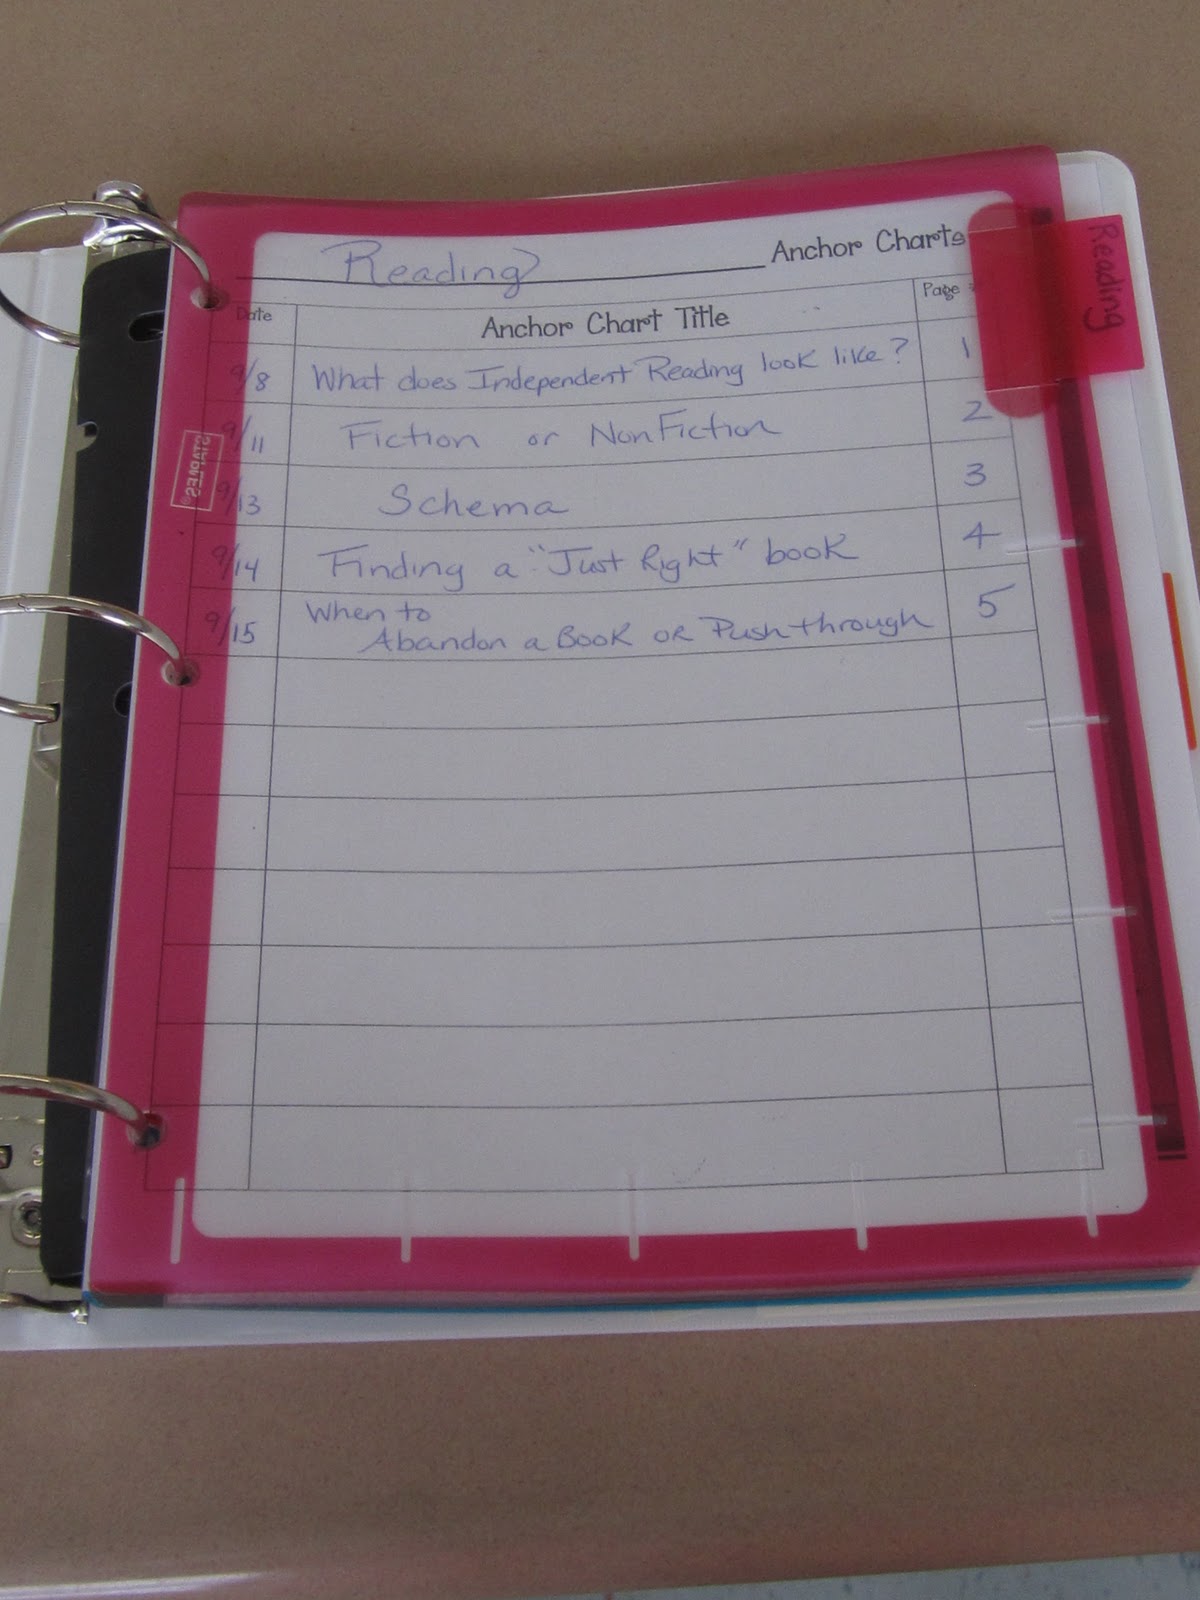 Reading Anchor Charts
Date Anchor Chart Title Page #
9/8 What does Independent Reading look like? 1
9/11 Fiction or NonFiction 2
9/13 Schema 3
9/14 Finding a "Just Right" book 4
9/15 When to
Abandon a Book or Push through 5
Reading
STAPLES